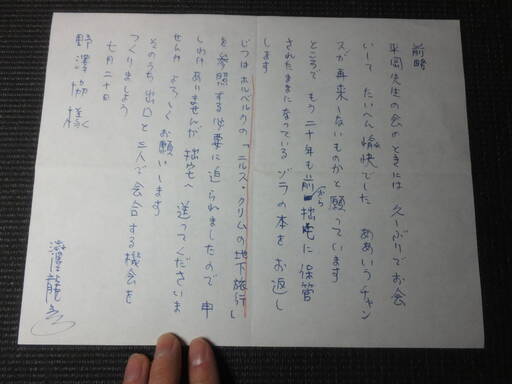 前略
平岡先生の会のときには 久しぶりでお会
いして たいへん愉快でした ああいうチャン
スが再来しないものかと願っています
ところで もう二十年も前から拙宅に保管
されたままになっている ゾラの本をお返し
します
じつはホルベルクの「ニルス・クリムの地下旅行」
を参照する必要に迫られましたので 申
しわけありませんが 拙宅へ 送ってくださいま
せんか よろしくお願いします
そのうち 出口と三人で会合する機会を
つくりましょう
七月二十日
野澤協様
澁澤龍彦